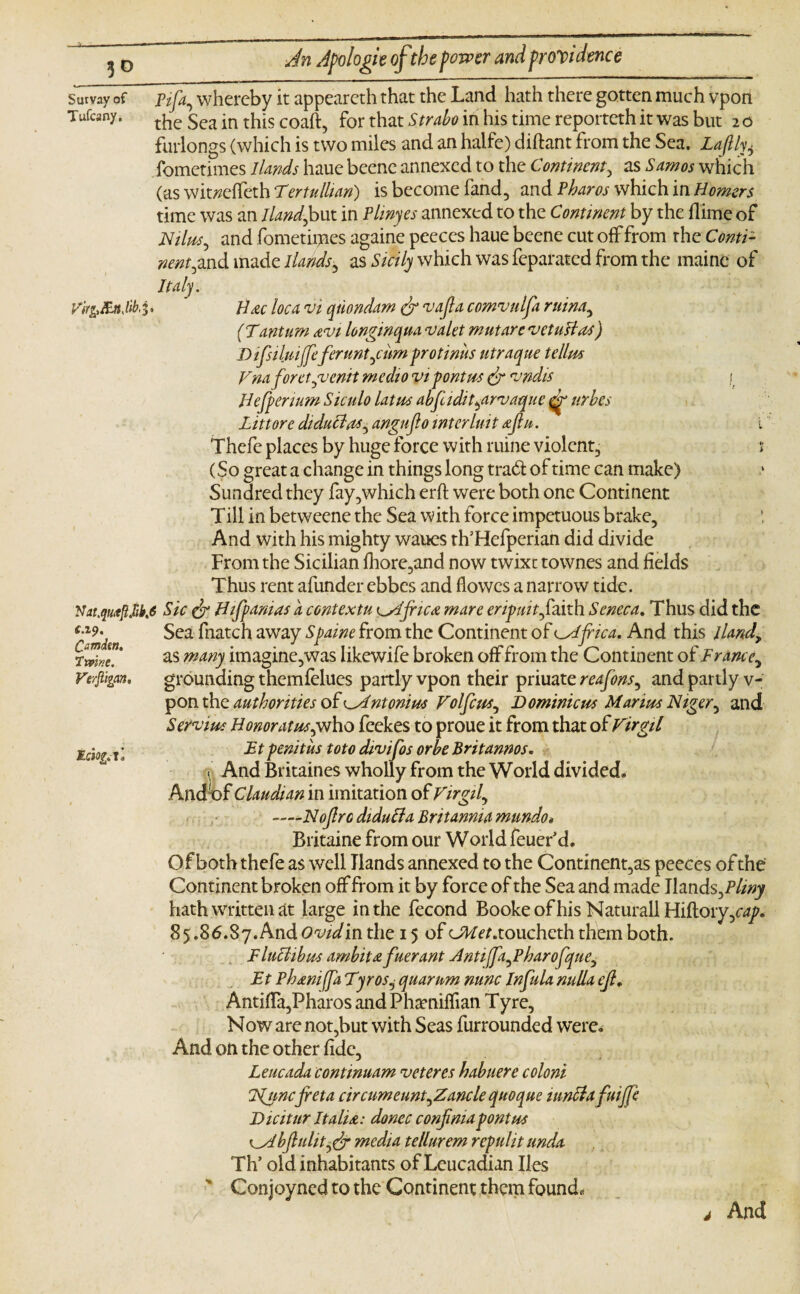 30 An Apologie of the power and proVidence
Survay of
Tuſcany.
Piſa, whereby it appeareth that the Land hath there gotten much vpon
the Sea in this coaſt, for that Strabo in his time reporteth it was but 20
furlongs (which is two miles and an halfe) diſtant from the Sea. Laſtly,
ſometimes Ilands haue beene annexed to the Continent, as Samos which
(as witneſſeth Tertullian) is become ſand, and Pharos which in Homers
time was an Iland, but in Plinyes annexed to the Continent by the ſlime of
Nilus, and ſometimes againe peeces haue beene cut off from the Conti-
nent, and made Ilands, as Sicily which was ſeparated from the maine of
Italy.
Virg. Æn. lib. 3.
Hæc loca vi quondam & vaſta comvulſa ruina,
(Tantum ævi longinqua valet mutare vetuſtas)
Diſsiluiſſe ferunt, cùm protinùs utraque tellus
Vna foret, venit medio vi pontus & vndis
Heſperium Siculo latus abſcidit, arvaque & urbes
Littore diductas, anguſto interluit æſtu.
Theſe places by huge force with ruine violent,
(So great a change in things long tract of time can make)
Sundred they ſay, which erſt were both one Continent
Till in betweene the Sea with force impetuous brake,
And with his mighty waues th'Heſperian did divide
From the Sicilian ſhore, and now twixt townes and fields
Thus rent aſunder ebbes and flowes a narrow tide.
Nat. quæſt. lib. 6
c. 29.
Camden.
Twine.
Verſtigan.
Sic & Hiſpanias à contextu Africæ mare eripuit, ſaith Seneca. Thus did the
Sea ſnatch away Spaine from the Continent of Africa. And this Iland,
as many imagine, was likewiſe broken off from the Continent of France,
grounding themſelues partly vpon their priuate reaſons, and partly v-
pon the authorities of Antonius Volſcus, Dominicus Marius Niger, and
Servius Honoratus, who ſeekes to proue it from that of Virgil
Eclog. 1.
Et penitùs toto diviſos orbe Britannos.
And Britaines wholly from the World divided.
And of Claudian in imitation of Virgil,
——Noſtro diducta Britannia mundo.
Britaine from our World ſeuer'd.
Of both theſe as well Ilands annexed to the Continent, as peeces of the
Continent broken off from it by force of the Sea and made Ilands, Pliny
hath written at large in the ſecond Booke of his Naturall Hiſtory, cap.
85.86.87. And Ovid in the 15 of Met. toucheth them both.
Fluctibus ambitæ fuerant Antiſſa, Pharoſque,
Et Phæniſſa Tyros, quarum nunc Inſula nulla eſt.
Antiſſa, Pharos and Phæniſſian Tyre,
Now are not, but with Seas ſurrounded were.
And on the other ſide,
Leucada continuam veteres habuere coloni
Nunc freta circumeunt, Zancle quoque iuncta fuiſſe
Dicitur Italiæ: donec confinia pontus
Abſtulit, & media tellurem repulit unda
Th' old inhabitants of Leucadian Iles
Conjoyned to the Continent them found.
And